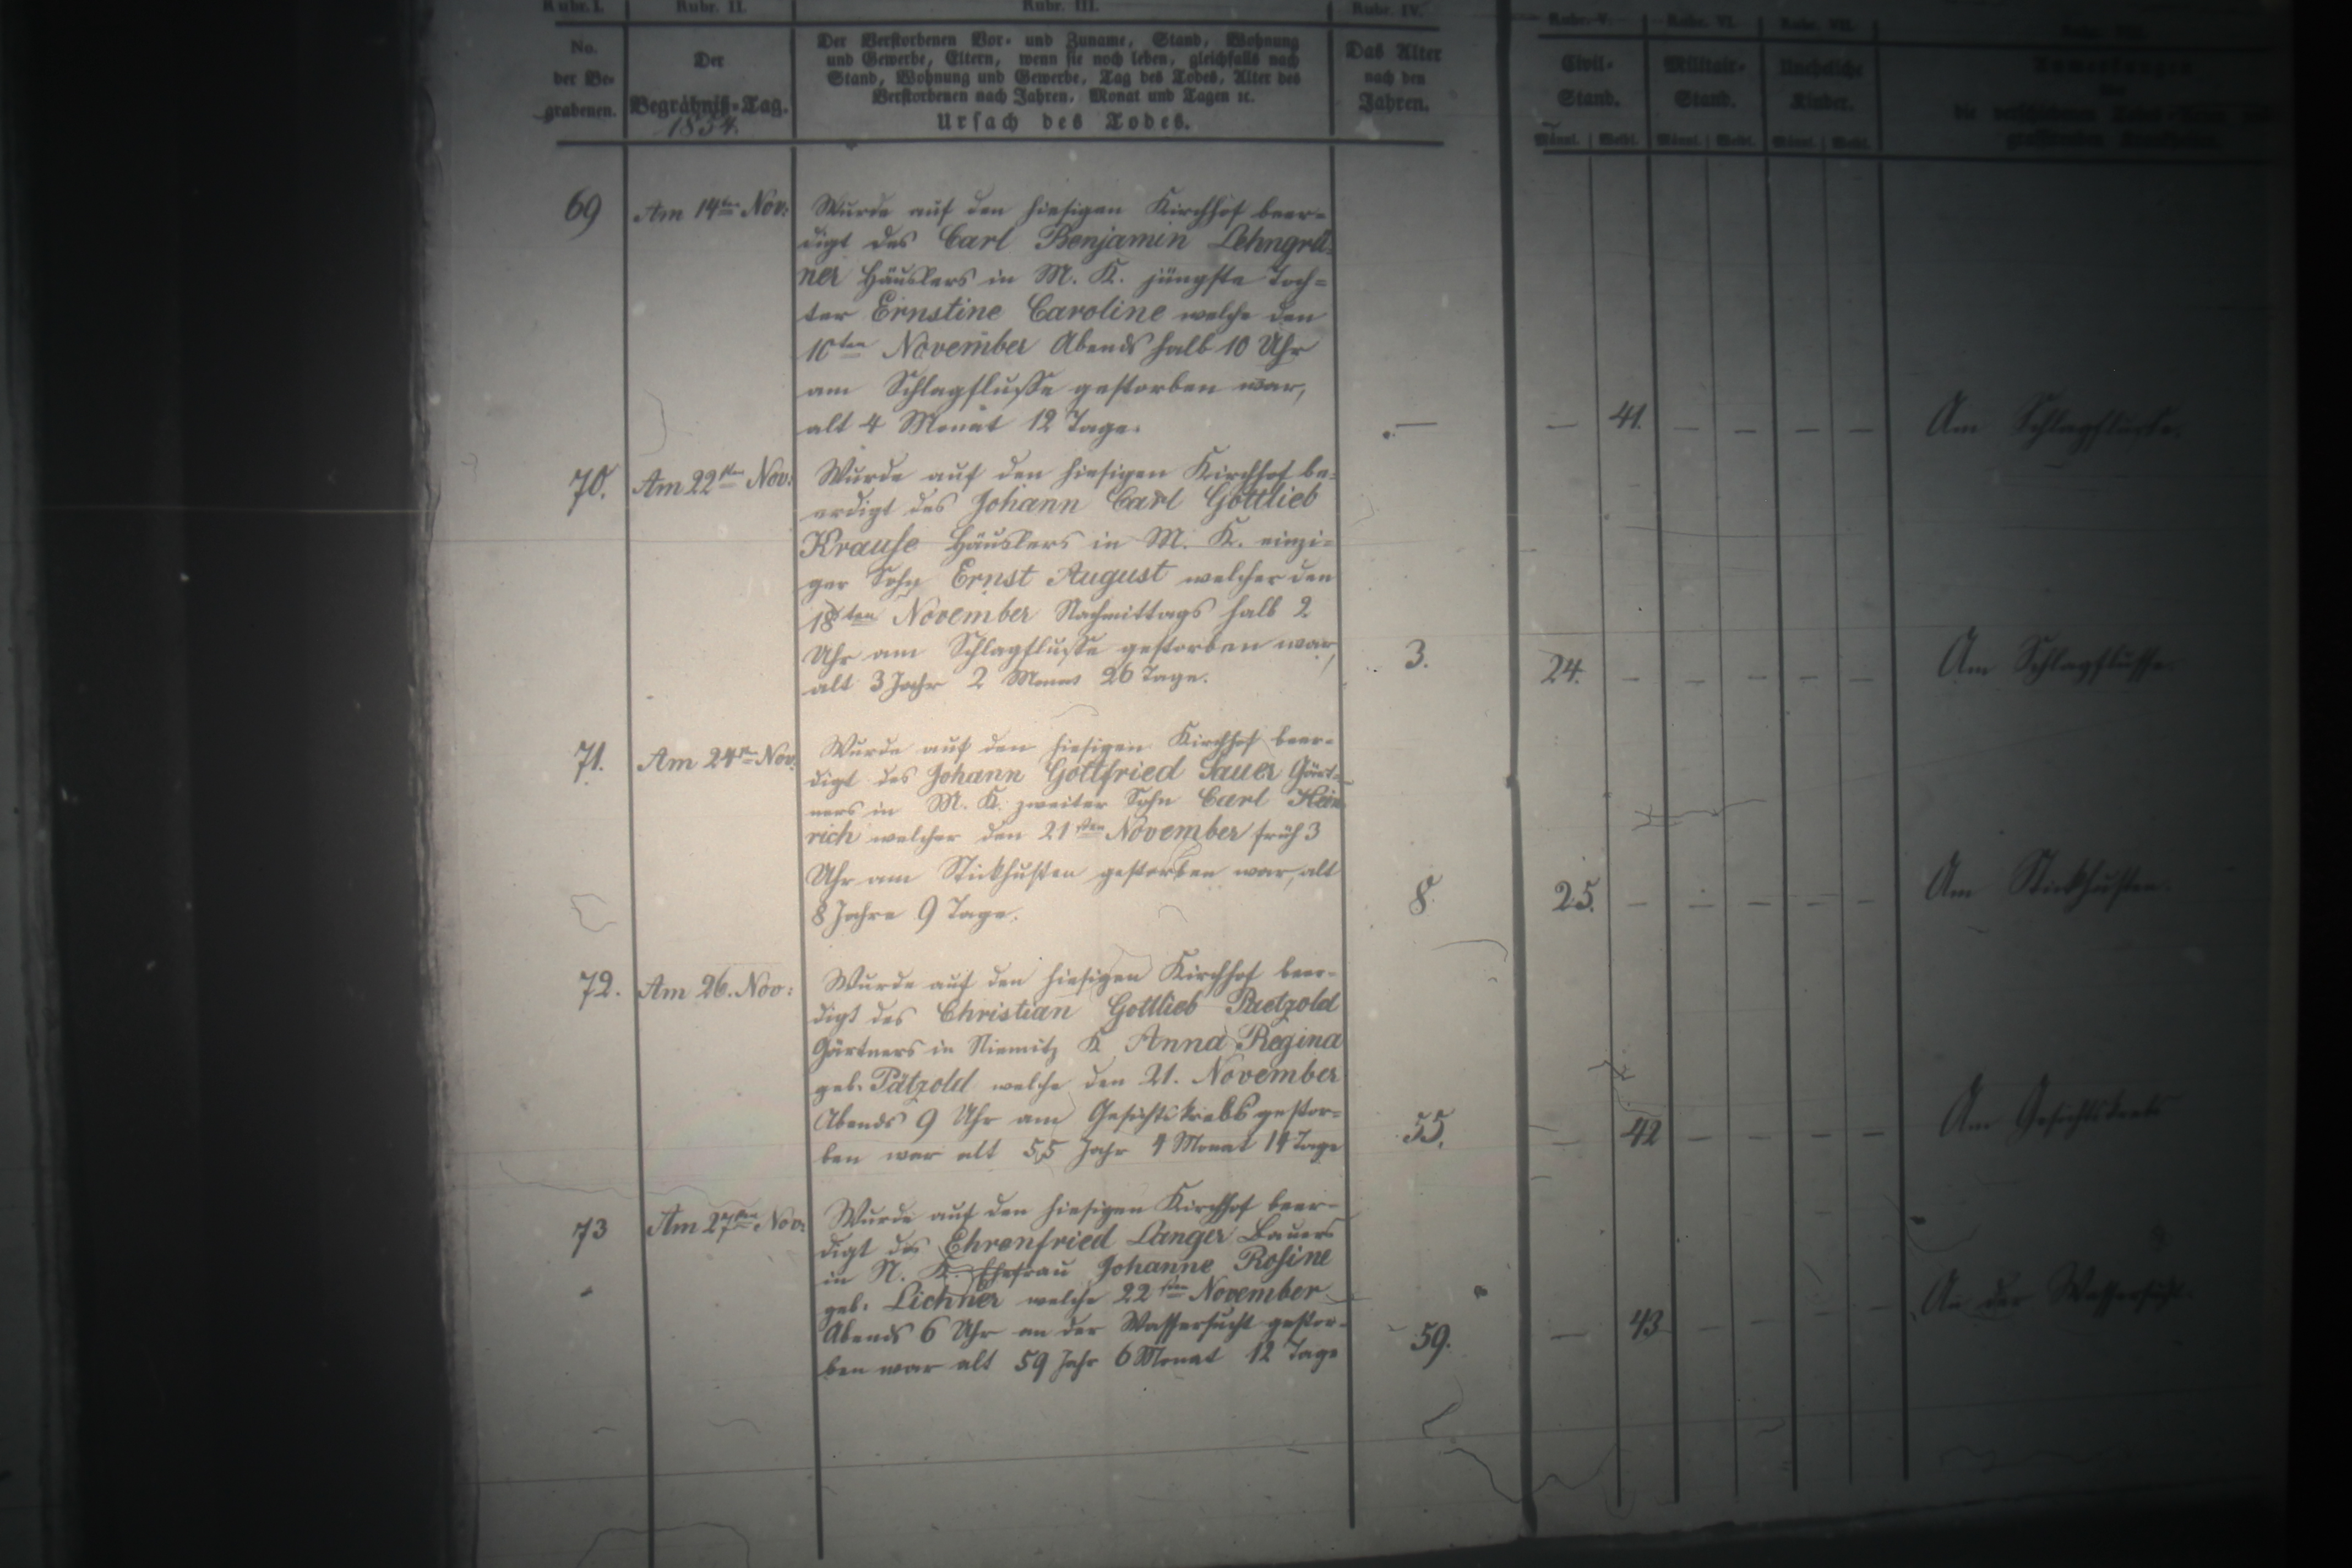 Rubr. I. Rubr. II. Rubr. III. Rubr. IV. Rubr. V. Rubr. VI. Rubr. VII.
No. der Be- grabenen.
Der Begräbniß-Tag.
1854.
Der Verstorbenen Vor- und Zuname, Stand, Wohnung
und Gewerbe, Eltern, wenn sie noch leben, gleichfalls nach
Stand, Wohnung und Gewerbe, Tag des Todes, Alter des
Verstorbenen nach Jahren, Monat und Tagen ꝛc.
Ursach des Todes.
Das Alter
nach den
Jahren.
Civil-
Stand.
Militair-
Stand.
Uneheliche
Kinder.
Männl. Weibl. Männl. Weibl. Männl. Weibl.
69 Am 14ten Nov: Wurde auf den hiesigen Kirchhof beer-
digt des Carl Benjamin Lehngrü-
ner Häuslers in M. K. jüngste Toch-
ter Ernstine Caroline welche den
10ten November Abends halb 10 Uhr
am Schlagflusse gestorben war,
alt 4 Monat 12 Tage. — — 41. — — — — Am Schlagflusse.
70. Am 22sten Nov: Wurde auf den hiesigen Kirchhof be-
erdigt des Johann Carl Gottlieb
Krause Häuslers in M. K. einzi-
ger Sohn Ernst August welcher den
18ten November Nachmittags halb 2
Uhr am Schlagflusse gestorben war,
alt 3 Jahr 2 Monat 26 Tage. 3. 24. — — — — — Am Schlagflusse.
71. Am 24sten Nov. Wurde auf den hiesigen Kirchhof beer-
digt des Johann Gottfried Sauer Gärt-
ners in M. K. zweiter Sohn Carl Hein
rich welcher den 21sten November früh 3
Uhr am Stickhusten gestorben war, alt
8 Jahre 9 Tage. 8. 25. — — — — — Am Stickhusten.
72. Am 26. Nov: Wurde auf den hiesigen Kirchhof beer-
digt des Christian Gottlieb Paetzold
Gärtners in Niemitz K Anna Regina
geb. Pätzold welche den 21. November
Abends 9 Uhr am Gesichtskrebs gestor-
ben war alt 55 Jahr 4 Monat 14 Tage 55. — 42 — — — — Am Gesichtskrebs
73 Am 27sten Nov: Wurde auf den hiesigen Kirchhof beer-
digt des Ehrenfried Langer Bauers
in N. K. Ehefrau Johanne Rosine
geb. Lichner welche 22sten November
Abends 6 Uhr an der Wassersucht gestor-
ben war alt 59 Jahr 6 Monat 12 Tage 59. — 43 — — — — An der Wassersucht.